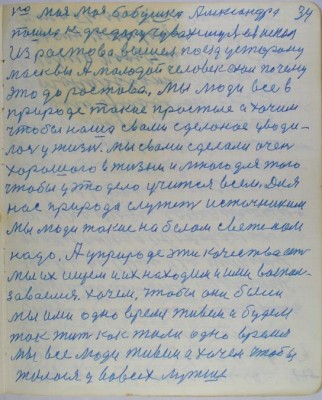 на моя моя бабушка Александра 34
пошла к
Из ростова вышел поезд устарону
москвы А молодой человек они почему
это до ростова, мы люди все в
природе такие простые а хочим
чтобы наша своим сделоное уводи-
лось у жизн. мы своим сделали очен
хорошого в жизни и много для того
чтобы у это дело учится всем. Для
нас природа служет источником
Мы люди такие на белом свете нам
надо. А уприроде эти качества ест
мы их ищем и их находим и ими
заваемся. хочем, чтобы они были
мы ими одно время живем и будем
так жит как жили одно время
мы все люди живем а хочем чтобы
жилося у во всех лутше